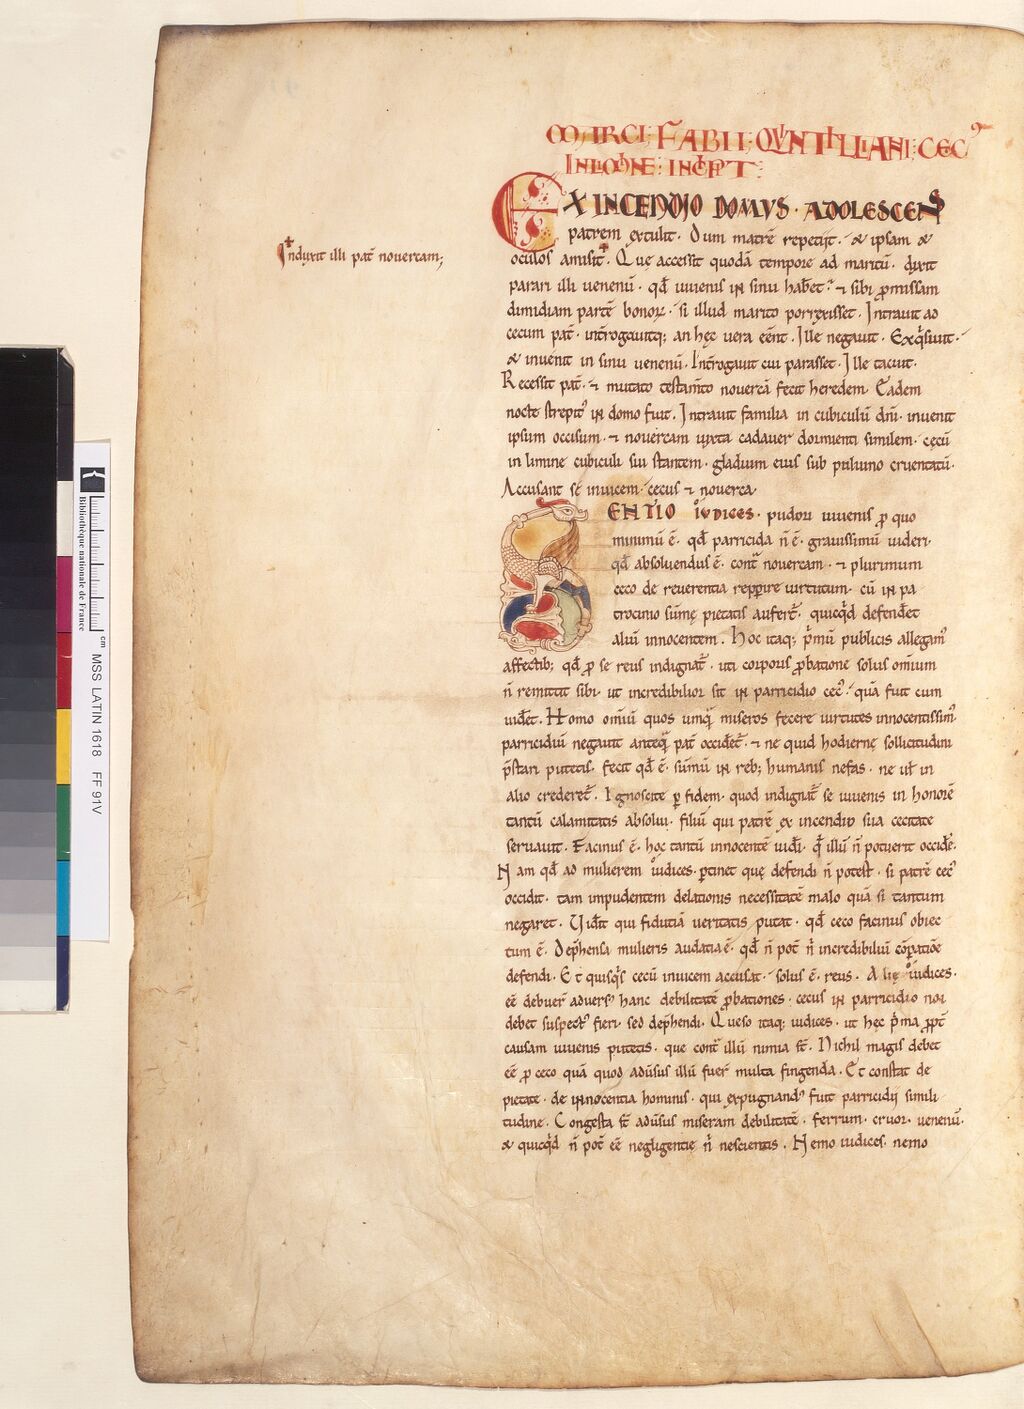 MARCI: FABII: QVNTILLIANI: CECꝰ
IN LIMINE: INCIPT:
EX INCENDIO DOMVS · ADOLESCENS
patrem extulit. Dum matrē repetijt · & ipsam &
oculos amisit. Quę accessit quodā tempore ad maritū. dixit
Induxit illi pat̄ nouercam;
parari illi uenenū. qđ iuuenis in sinu habet. ⁊ sibi ꝓmissam
dimidiam partē bonoꝝ. si illud marito porrexisset. Intrauit ad
cecum pat̄. int̄rogauitq; an hęc uera eēnt. Ille negauit. Exqͥsiuit.
& inuenit in sinu uenenū. Int̄rogauit cui parasset. Ille tacuit.
Recessit pat̄. ⁊ mutato testam̄to nouercā fecit heredem. Eadem
nocte strepitꝰ in domo fuit. Intrauit familia in cubiculū dn̄i. inuenit
ipsum occisum. ⁊ nouercam iuxta cadauer dormienti similem. cęcū
in limine cubiculi sui stantem. gladium eius sub puluino cruentatū.
Accusant se inuicem. cecus ⁊ nouerca.
SENTIO iudices. pudori iuuenis ꝓ quo
minimū ē. qđ parricida n̄ ē. grauissimū uideri.
qđ absoluendus ē. cont̄ nouercam. ⁊ plurimum
ceco de reuerentia repꝑire uirtutum. cū in pa
trocinio sūmę pietatis aufert̄. quicqͥd defendet
aliū innocentem. Hoc itaq; pͥmū publicis allegamꝰ
affectib; qđ ꝓ se reus indignat̄. uti corporis ꝓbatione solus omīum
n̄ remittit sibi. ut incredibilior sit in parricidio cecꝰ. quā fuit cum
uidet. Homo omīū quos umqͣ miseros fecere uirtutes innocentissimꝰ
parricidiū negauit anteqͣ pat̄ occidet̄. ⁊ ne quid hodiernę sollicitudini
p̄stari putetis. fecit qđ ē. sūmū in reb; humanis nefas. ne uł in
alio crederet̄. Ignoscite ꝑ fidem. quod indignat̄ se iuuenis in honorē
tantū calamitatis absolui. filiū qui patrē ex incendio sua cecitate
seruauit. Facinus ē. hoc tantū innocentē uidi. qͣ illū n̄ potuerit occidē.
Nam qđ ad mulierem iudices. ꝑtinet quę defendi n̄ potest. si patrē cecꝰ
occidit. tam impudentem delationis necessitatē malo quā si tantum
negaret. Uidit qui fiduciā ueritatis putat. qđ ceco facinus obiec
tum ē. Dep̄hensa mulieris audatia ē. qđ n̄ pot̄ n̄ incredibiliū cōꝑatiōe
defendi. Et quisqͥs cecū inuicem accusat. solus ē. reus. Alię iudices.
eē debuer̄ aduersꝰ hanc debilitatē ꝓbationes. cecus in parricidio non
debet suspectꝰ fieri. sed dep̄hendi. Queso itaq; iudices. ut hęc pͥma ꝓpt̄
causam iuuenis putetis. que cont̄ illū nimia st̄. Nichil magis debet
eē ꝓ ceco quā quod adūsus illū fuer̄ multa fingenda. Et constat de
pietate. de innocentia hominis. qui expugnandꝰ fuit parricidij simili
tudine. Congesta st̄ adūsus miseram debilitatē. ferrum. cruor. uenenū.
& quicqͥd n̄ pot̄ eē negligentię n̄ nescientis. Nemo iudices. nemo
Bibliothèque nationale de France
cm
MSS LATIN 1618 FF 91V